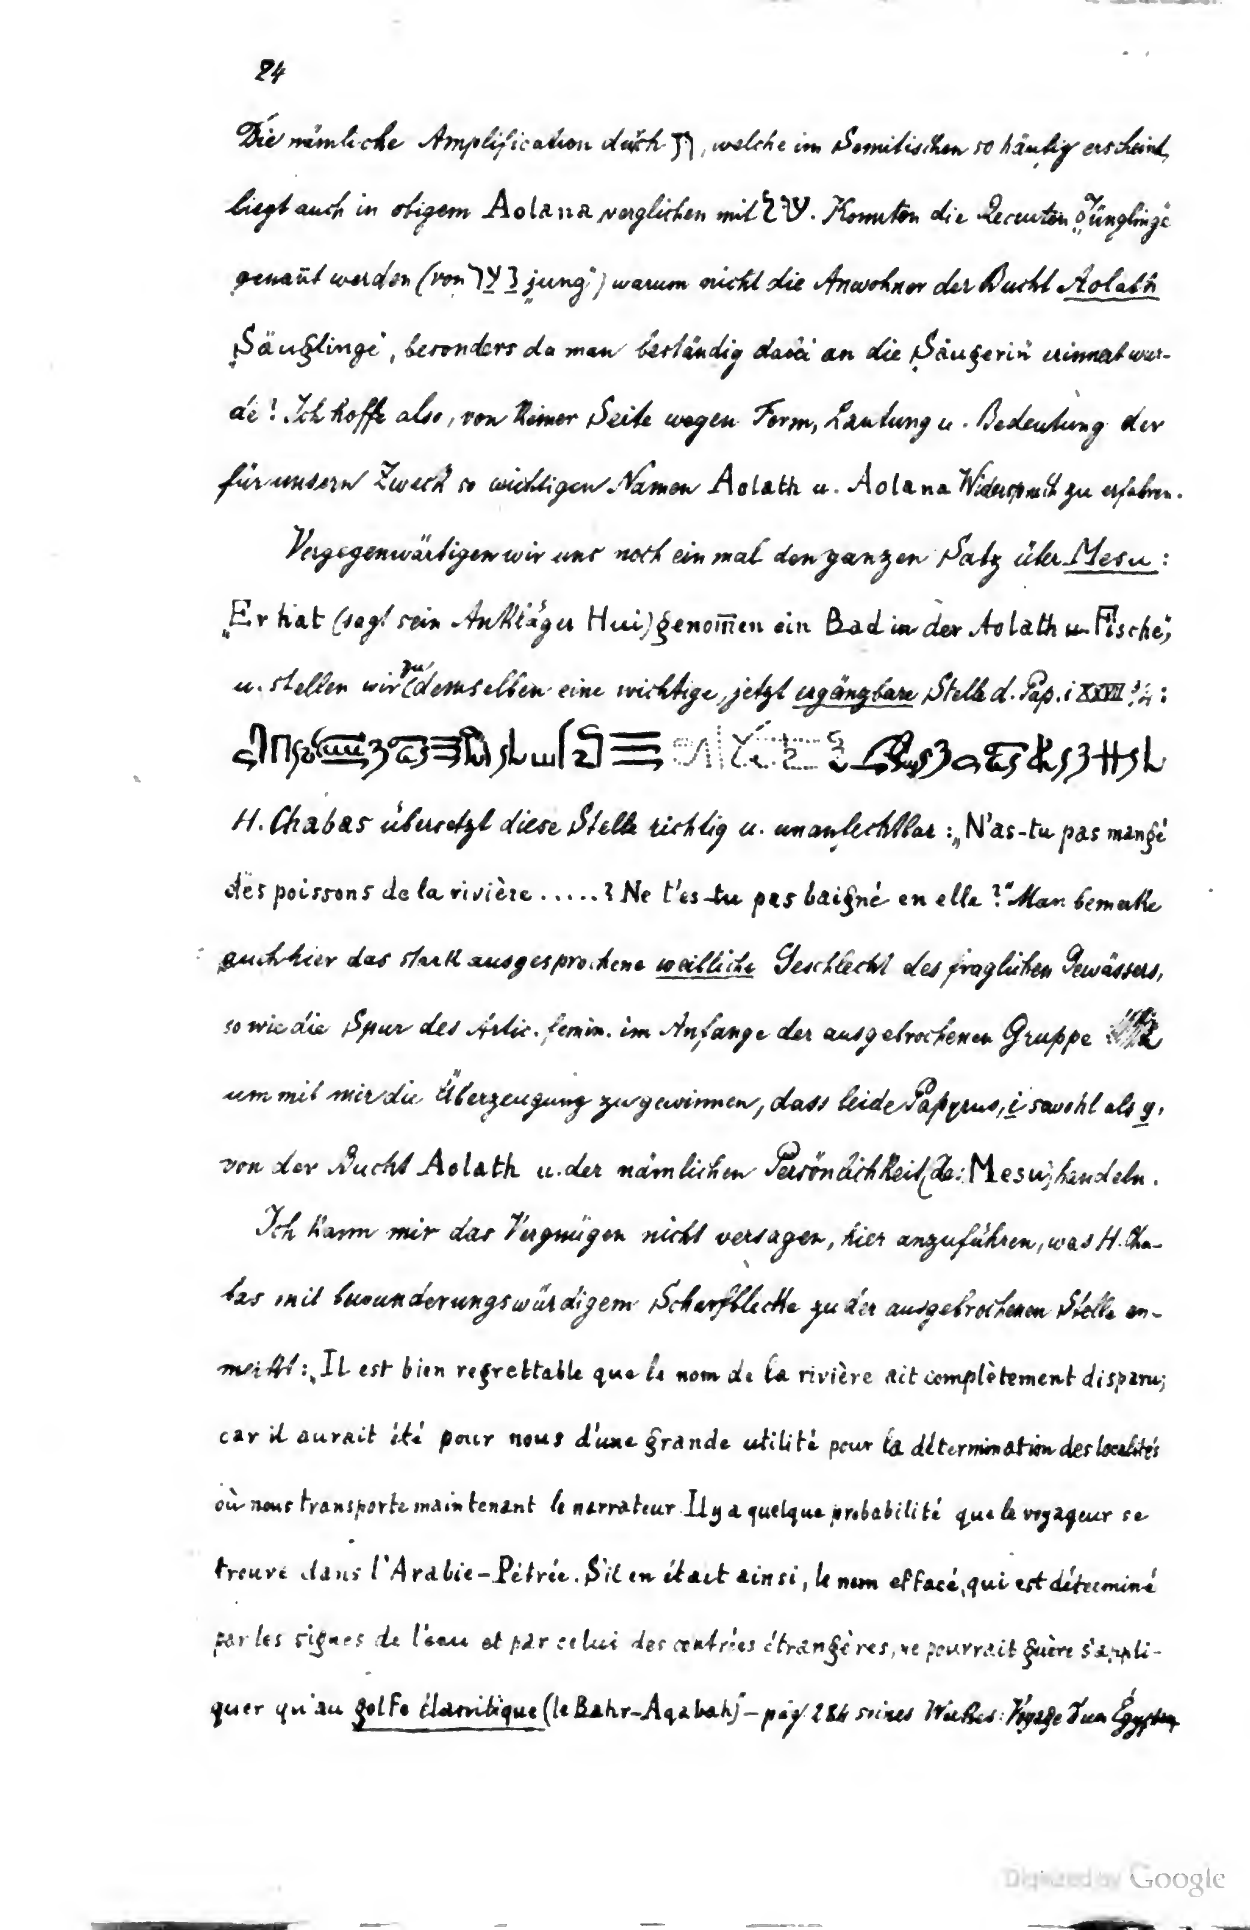 24
Die nämliche Amplification durch ן, welche im Semitischen so häufig erscheint,
liegt auch in obigem Aolana verglichen mit עול. Konnten die Recruten „Jünglinge"
genañt werden (von נער „jung") warum nicht die Anwohner der Bucht Aolath
„Säuglinge", besonders da man beständig dabei an die „Säugerin" erinnert wur-
de? Ich hoffe also, von keiner Seite wegen Form, Lautung u. Bedeutung der
für unsern Zweck so wichtigen Namen Aolath u. Aolana Widerspruch zu erfahren.
Vergegenwärtigen wir uns noch einmal den ganzen Satz über Mesu:
„Er hat (sagt sein Ankläger Hui) genom̄en ein Bad in der Aolath u. Fische",
u. stellen wir zu demselben eine wichtige, jetzt ergänzbare Stelle d. Pap. i XXVII:
H. Chabas übersetzt diese Stelle richtig u. unanfechtbar: „N'as-tu pas mangé
des poissons de la rivière .....? Ne t'es-tu pas baigné en elle?" Man bemerke
auch hier das stark ausgesprochene weibliche Geschlecht des fraglichen Gewässers,
sowie die Spur des Artic. femin. im Anfange der ausgebrochenen Gruppe
um mit mir die Überzeugung zu gewinnen, dass beide Papyrus, i sowohl als g,
von der Bucht Aolath u. der nämlichen Persönlichkeit (de: Mesu) handeln.
Ich kann mir das Vergnügen nicht versagen, hier anzuführen, was H. Cha-
bas mit bewunderungswürdigem Scharfblicke zu der ausgebrochenen Stelle an-
merkt: „Il est bien regrettable que le nom de la rivière ait complètement disparu;
car il aurait été pour nous d'une grande utilité pour la détermination des localités
où nous transporte maintenant le narrateur. Il y a quelque probabilité que le voyageur se
trouve dans l'Arabie-Pétrée. S'il en était ainsi, le nom effacé, qui est déterminé
par les signes de l'eau et par celui des contrées étrangères, ne pourrait guère s'appli-
quer qu'au golfe élamitique (le Bahr-Aqabah)" – pag. 284 seines Werkes: Voyage d'un Égyptien
Digitized by Google